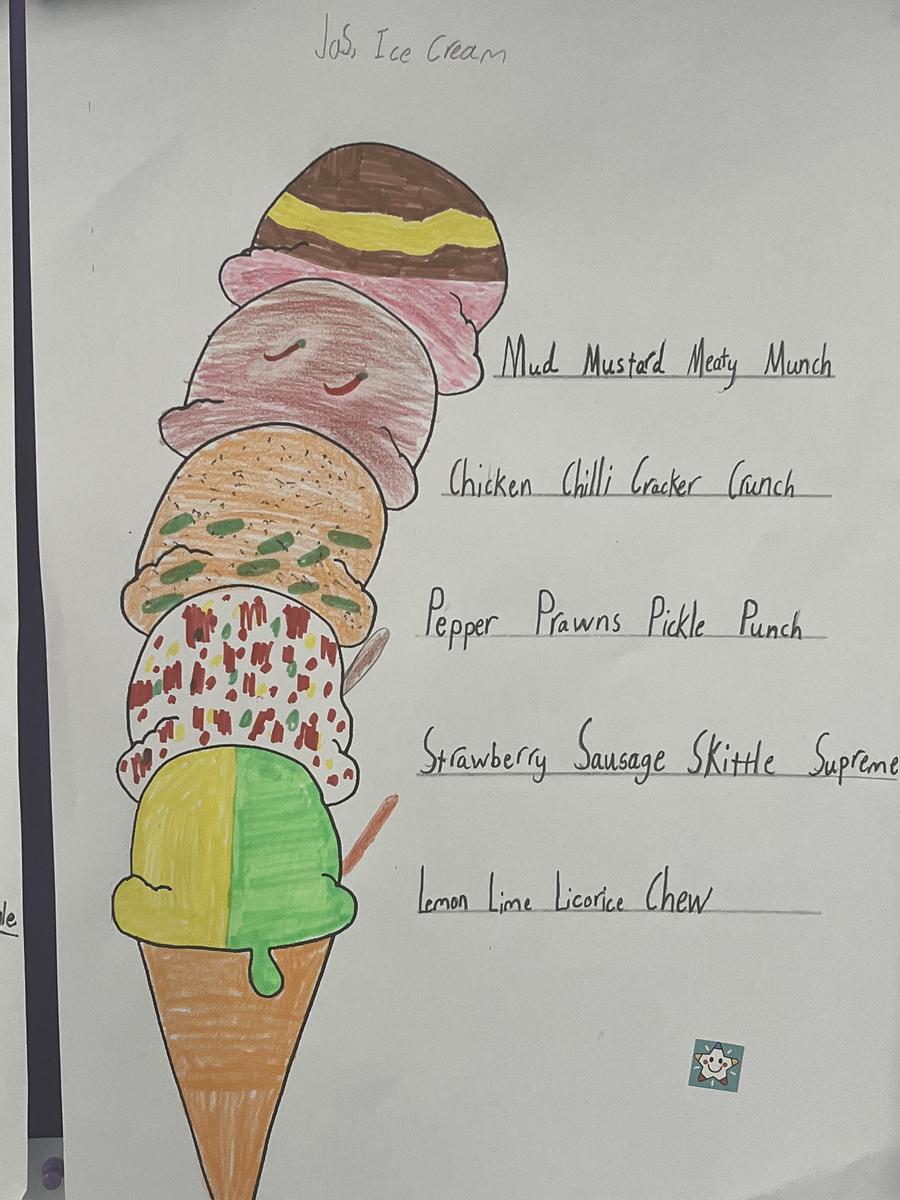 Jo's Ice Cream
Mud Mustard Meaty Munch
Chicken Chilli Cracker Crunch
Pepper Prawns Pickle Punch
Strawberry Sausage Skittle Supreme
Lemon Lime Licorice Chew